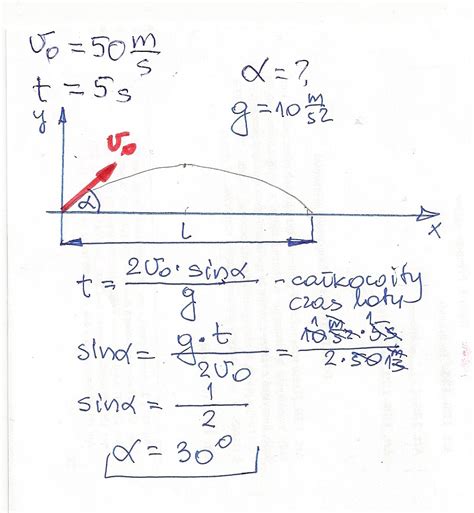 v₀ = 50 m/s
t = 5s
α = ?
g = 10 m/s²
y
v₀
α
l
x
t = 2v₀·sinα / g - całkowity
czas lotu
sinα = g·t / 2v₀ = 10 m/s² · 5s / 2·50 m/s
sinα = 1/2
α = 30°